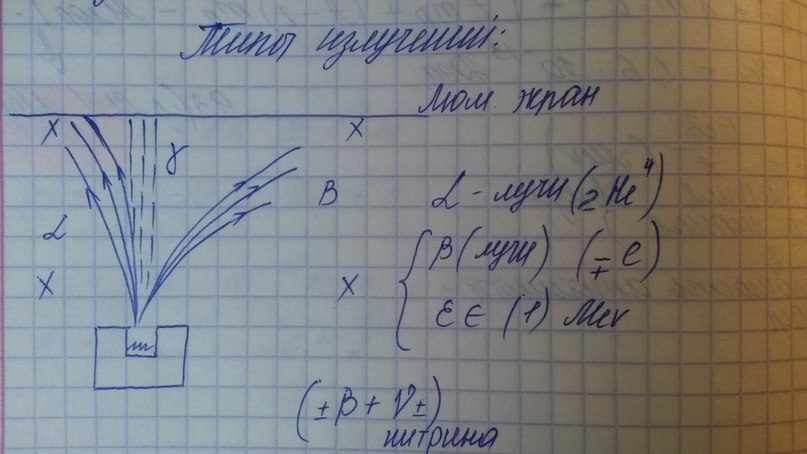 Типы излучений:
Люм. экран
X X
γ
B
α
X X
α - лучи (₂He⁴)
β (лучи) (∓e)
ε ∈ (1) Mev
(±β + ν±)
нитрина